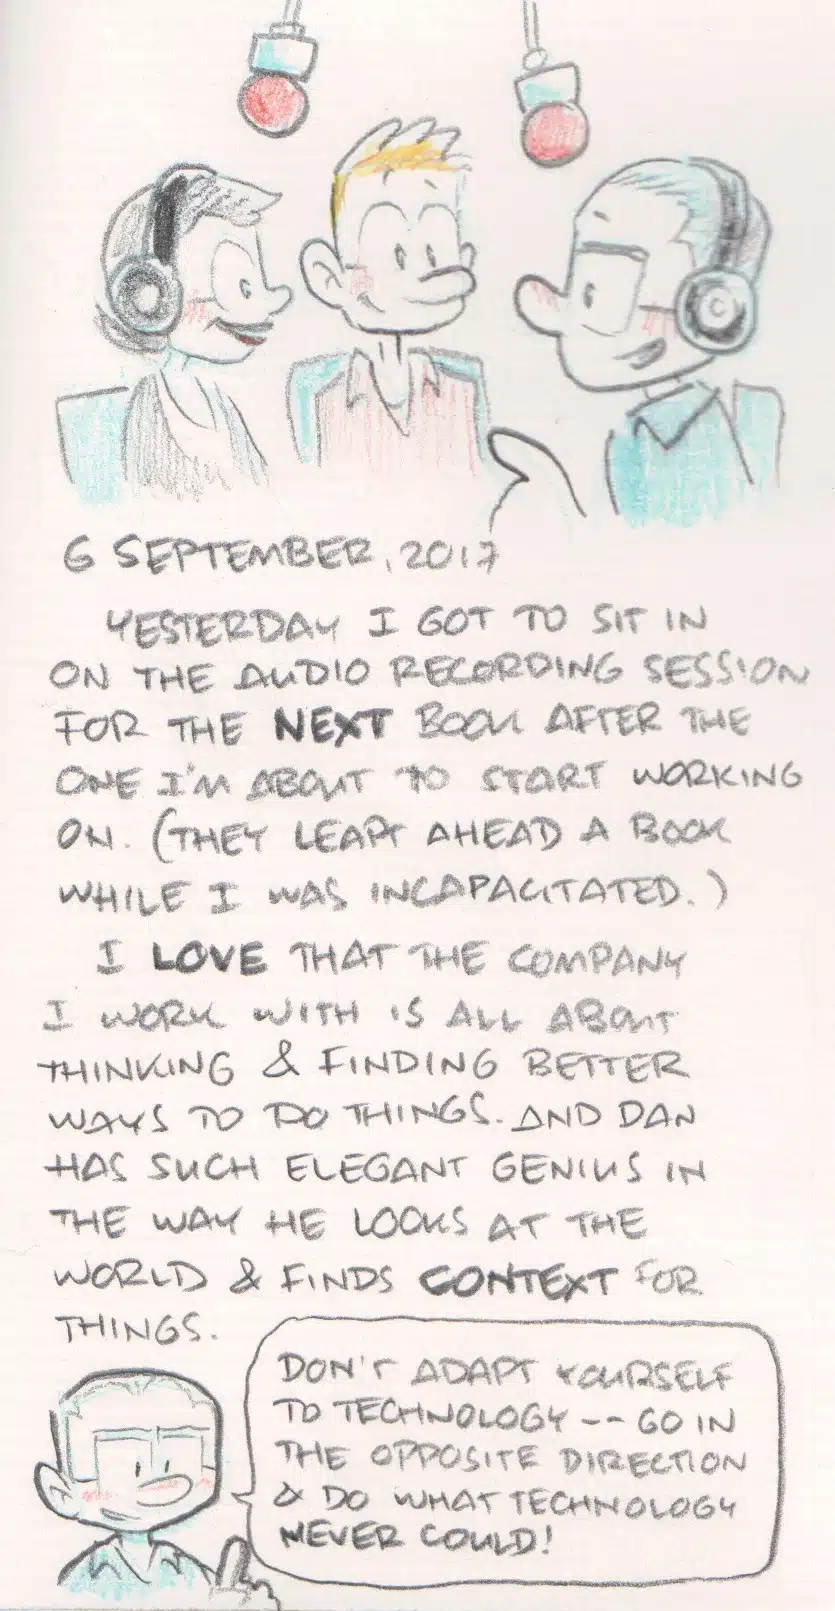 6 SEPTEMBER, 2017
YESTERDAY I GOT TO SIT IN
ON THE AUDIO RECORDING SESSION
FOR THE NEXT BOOK AFTER THE
ONE I'M ABOUT TO START WORKING
ON. (THEY LEAPT AHEAD A BOOK
WHILE I WAS INCAPACITATED.)
I LOVE THAT THE COMPANY
I WORK WITH IS ALL ABOUT
THINKING & FINDING BETTER
WAYS TO DO THINGS. AND DAN
HAS SUCH ELEGANT GENIUS IN
THE WAY HE LOOKS AT THE
WORLD & FINDS CONTEXT FOR
THINGS.
DON'T ADAPT YOURSELF
TO TECHNOLOGY -- GO IN
THE OPPOSITE DIRECTION
& DO WHAT TECHNOLOGY
NEVER COULD!